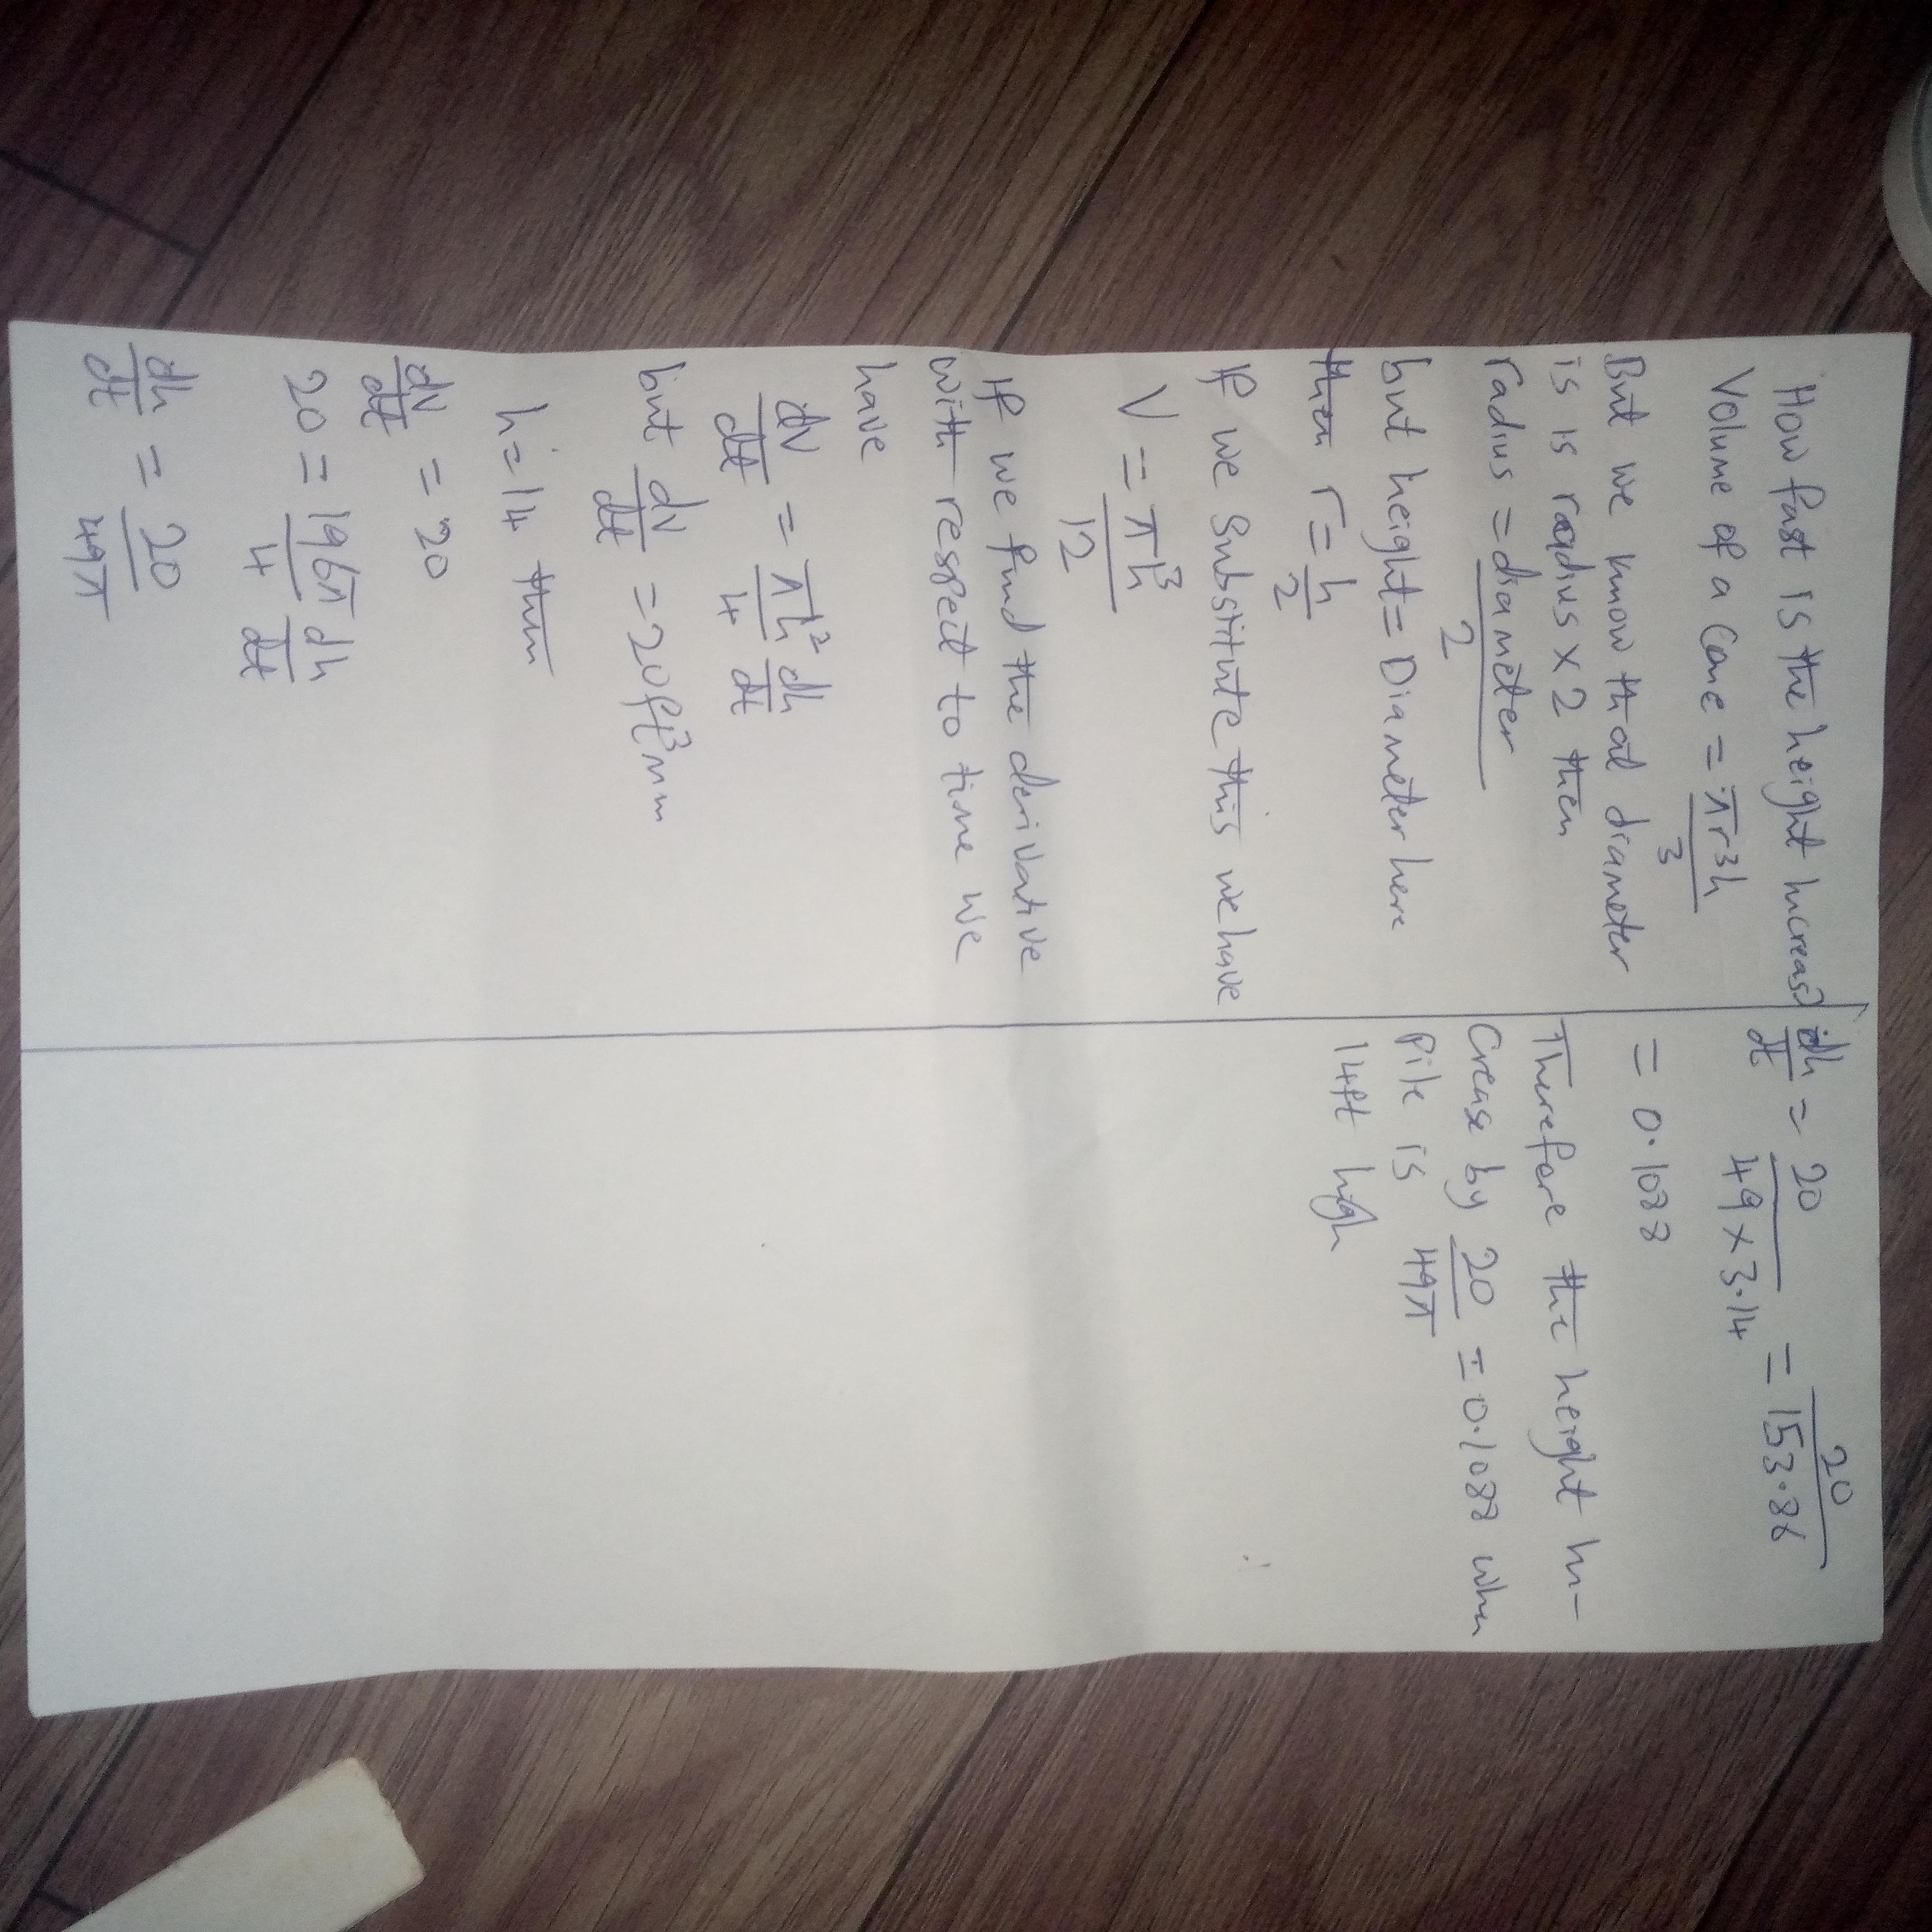 How fast is the height increase?
Volume of a cone = πr3h
3
But we know that diameter
is is radius × 2 then
radius = diameter
2
but height = Diameter here
then r = h/2
If we substitute this we have
V = πh³/12
If we find the derivative
with respect to time we
have
dv/dt = πh²/4 dh/dt
but dv/dt = 20ft³min
h = 14 then
dv/dt = 20
20 = 196π/4 dh/dt
dh/dt = 20/49π
dh/dt = 20/49×3.14 = 20/153.86
= 0.1088
Therefore the height in-
crease by 20/49π = 0.1088 when
Pile is
14ft high